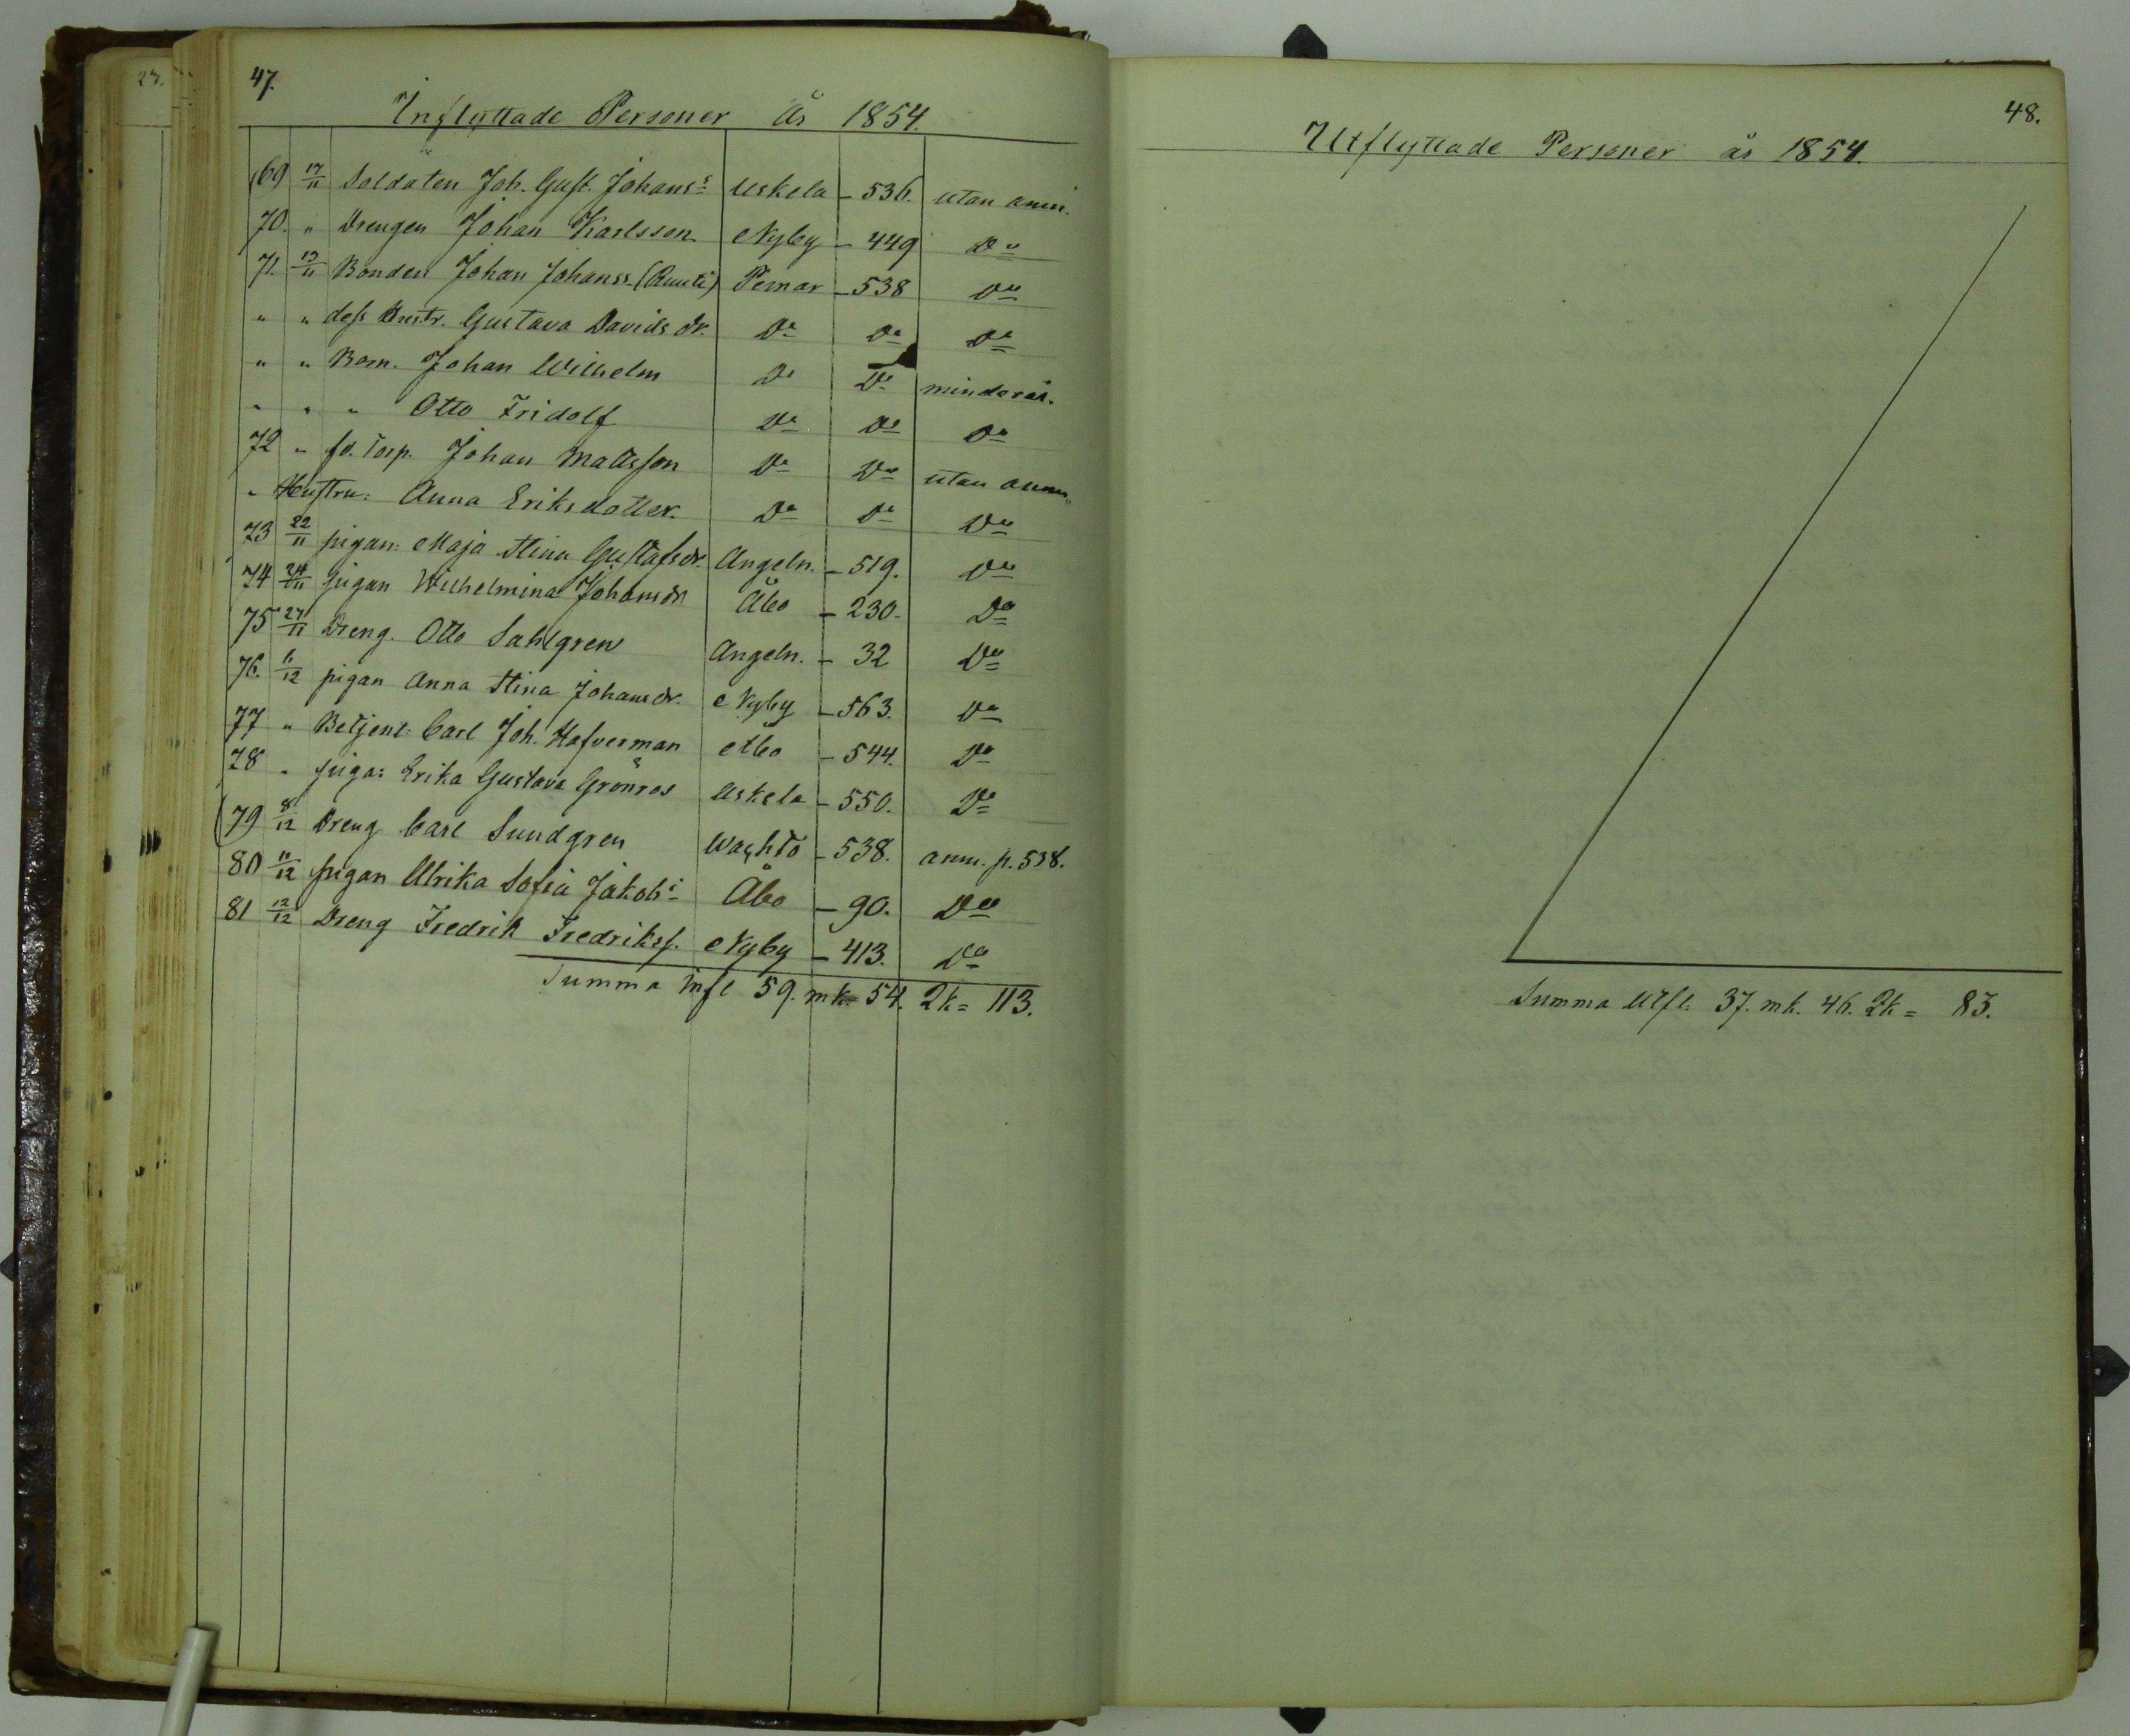 27.
47.
Inflyttade Personer År 1854.
69 17/11 Soldaten Joh. Gust. Johanss: Uskela - 536. utan anm.
70. " Drengen Johan Karlsson Nyby - 449 Do
71. 19/11 Bonden Johan Johanss. (Ruuti) Pemar - 538 Do
" " dess Hustr. Gustava Davidsdr. Do Do Do
" " Barn. Johan Wilhelm Do Do minderår.
" " " Otto Fridolf Do Do Do
72 " fd. Torp. Johan Mattsson Do Do utan anm.
" Hustru: Anna Eriksdotter. Do Do Do
73 22/11 pigan: Maja Stina Gustafsdr. Angeln. - 519. Do
74 24/11 pigan Wilhelmina Johansdr Åbo - 230. Do
75 27/11 Dreng. Otto Sahlgren Angeln. - 32 Do
76. 6/12 pigan Anna Stina Johansdr. Nyby - 563. Do
77 " Betjent: Carl Joh. Hafverman Åbo - 544. Do
78 " piga: Erika Gustava Grönros Uskela - 550. Do
79 8/12 Dreng Carl Sundgren - 538. anm. p. 538.
80 11/12 pigan Ulrika Sofia Jakobs: Åbo - 90. Do
81 12/12 Dreng Fredrik Fredrikss. Nyby - 413. Do
Summa Infl 59. mk. 54. 2k = 113.
48.
Utflyttade Personer år 1854.
Summa Utfl: 37. mk. 46. 2k = 83.